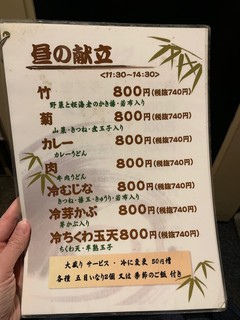 昼の献立
<11:30~14:30>
竹 800円(税抜740円)
野菜と桜海老のかき揚・若布入り
菊 800円(税抜740円)
山菜・きつね・煮玉子入り
カレー 800円(税抜740円)
カレーうどん
肉 800円(税抜740円)
牛肉うどん
冷むじな 800円(税抜740円)
きつね・揚玉・きゅうり・若布入り
冷芽かぶ 800円(税抜740円)
芽かぶ入り
冷ちくわ玉天 800円(税抜740円)
ちくわ天・半熟玉子
大盛り サービス ・ 冷に変更 50円増
各種 五目いなり2個 又は 季節のご飯 付き